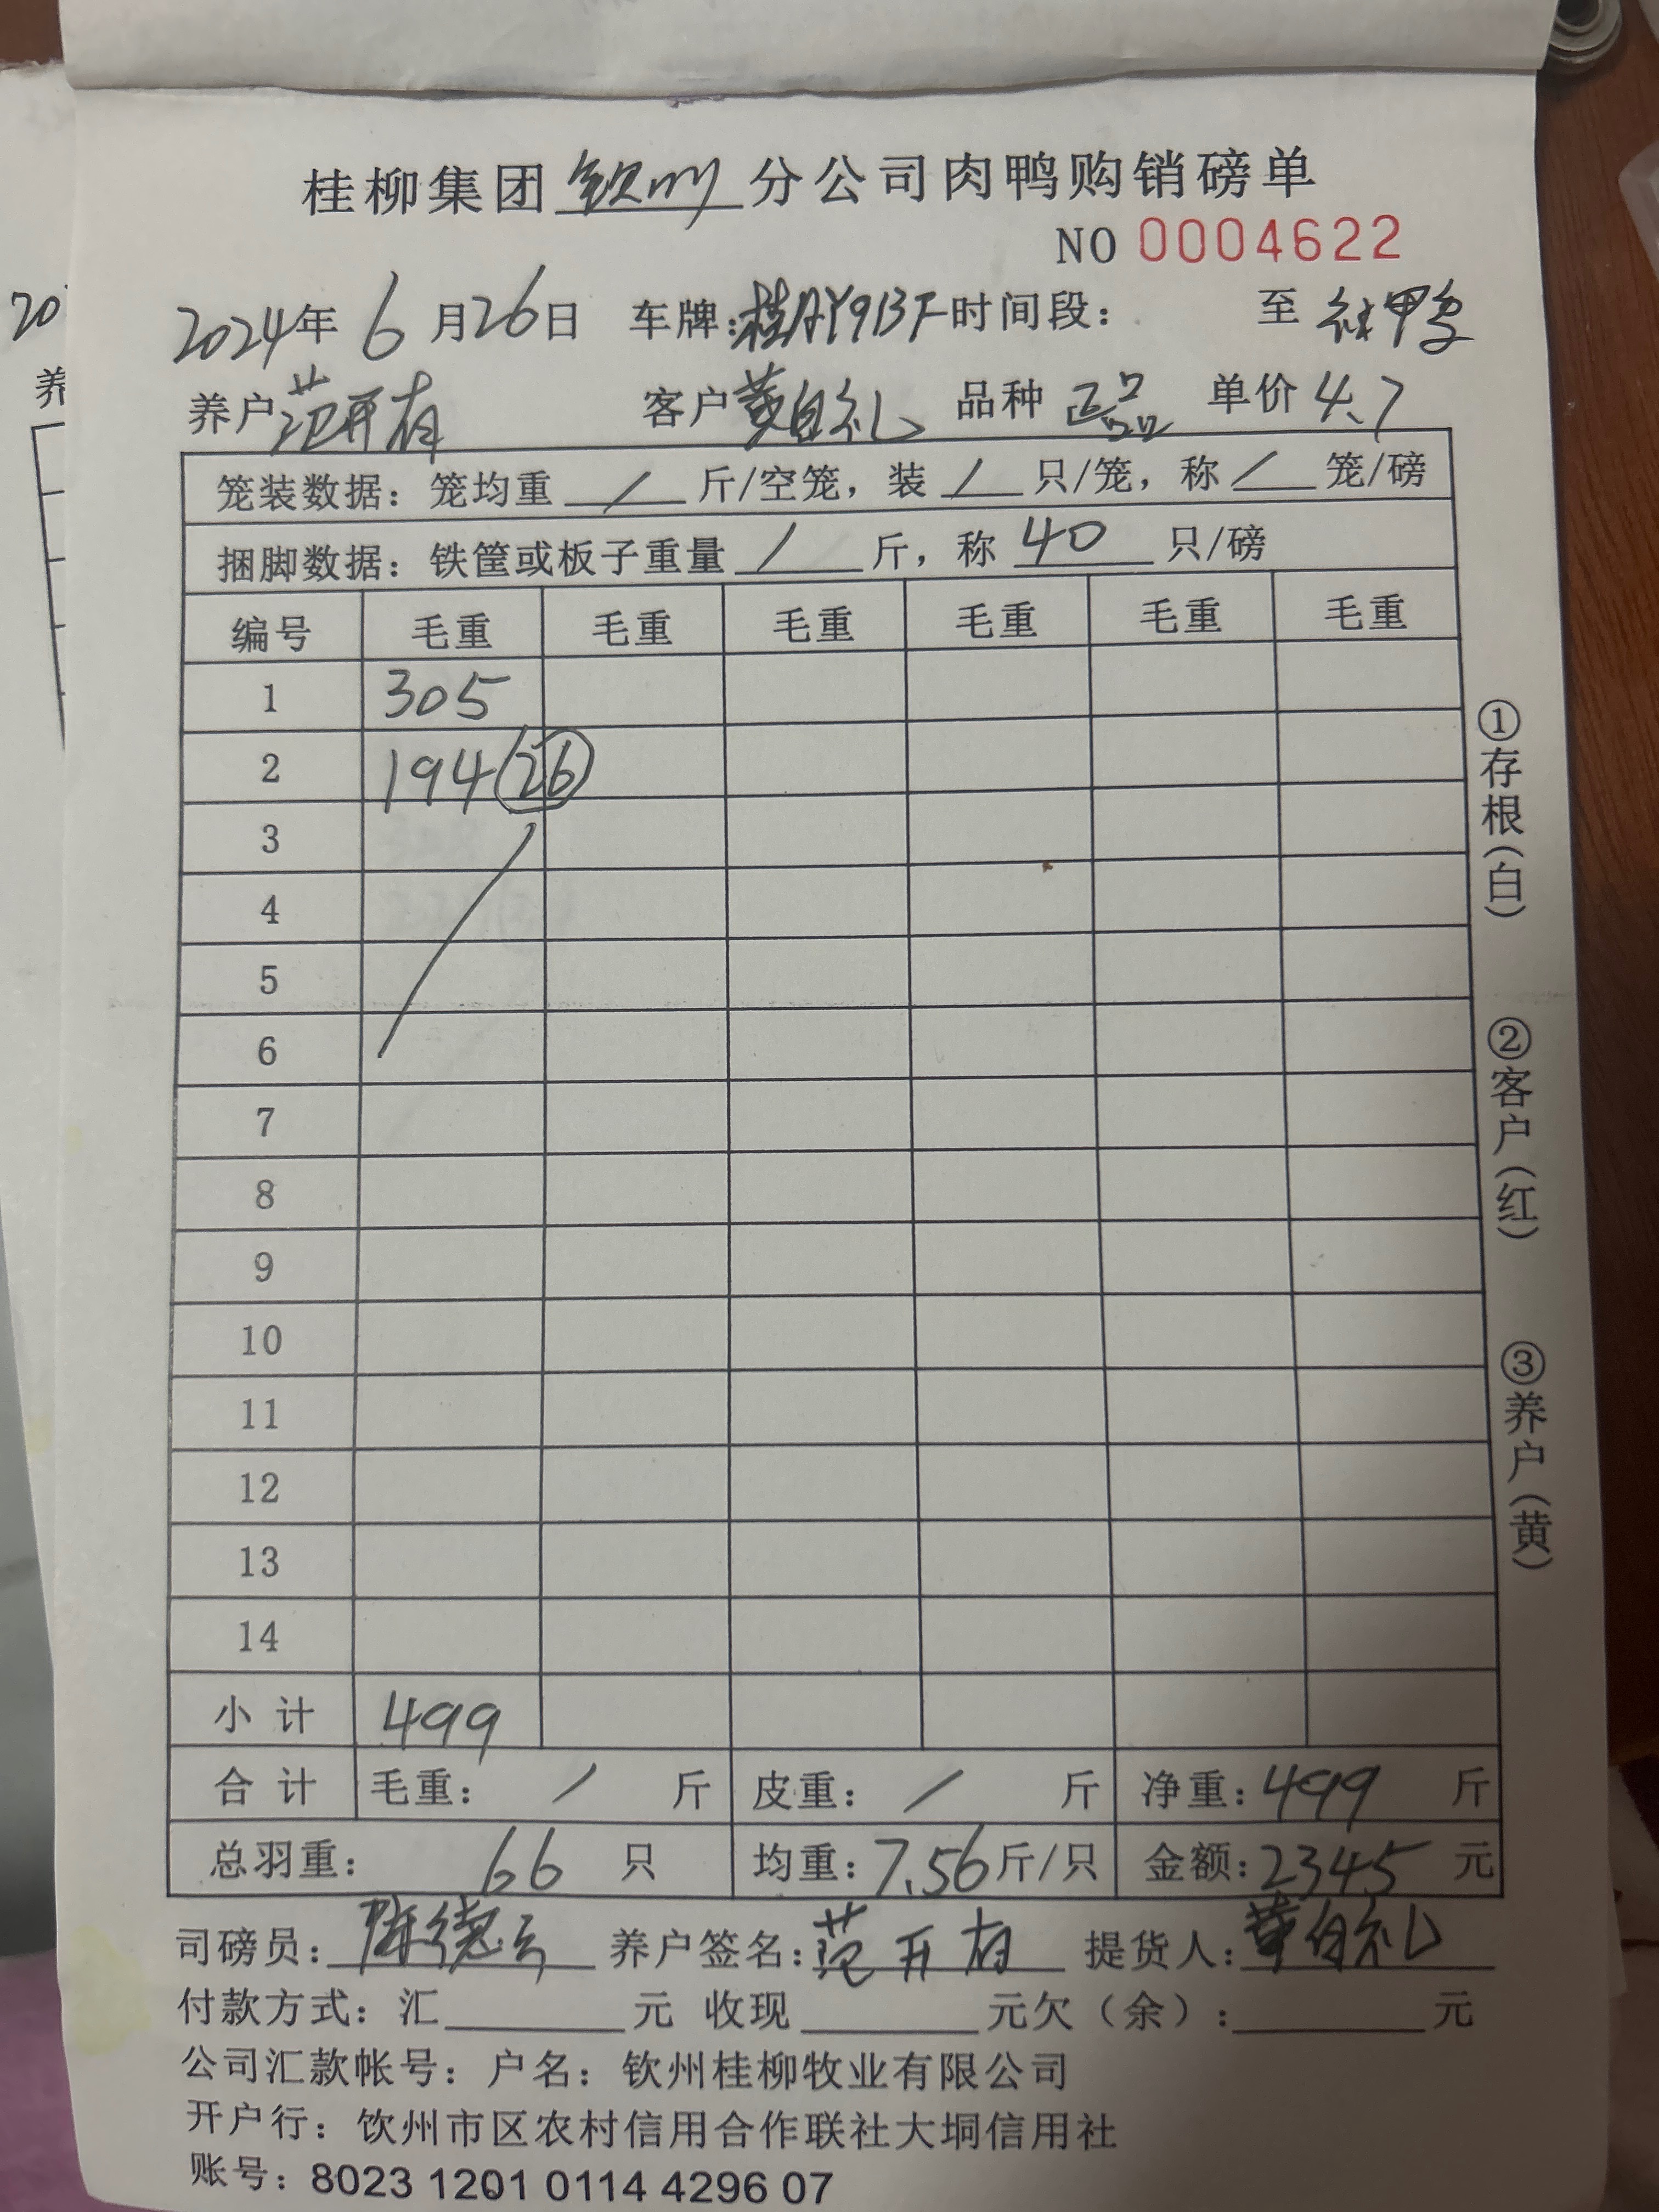 桂柳集团钦州分公司肉鸭购销磅单
NO 0004622
2024年6月26日 车牌:桂AY913F时间段: 至 鸭
养户范开有 客户黄自礼 品种 正品 单价4.7
笼装数据:笼均重 / 斤/空笼,装 / 只/笼,称 / 笼/磅
捆脚数据:铁筐或板子重量 / 斤,称 40 只/磅
编号 毛重 毛重 毛重 毛重 毛重 毛重
1 305
2 194 26
3
4
5
6
7
8
9
10
11
12
13
14
小计 499
合计 毛重: / 斤 皮重: / 斤 净重:499 斤
总羽重: 66 只 均重:7.56斤/只 金额:2345 元
司磅员:陈德云 养户签名:范开有 提货人:黄自礼
付款方式:汇 元 收现 元欠(余): 元
公司汇款帐号:户名:钦州桂柳牧业有限公司
开户行:钦州市区农村信用合作联社大垌信用社
账号:8023 1201 0114 4296 07
①存根(白)
②客户(红)
③养户(黄)
20
养